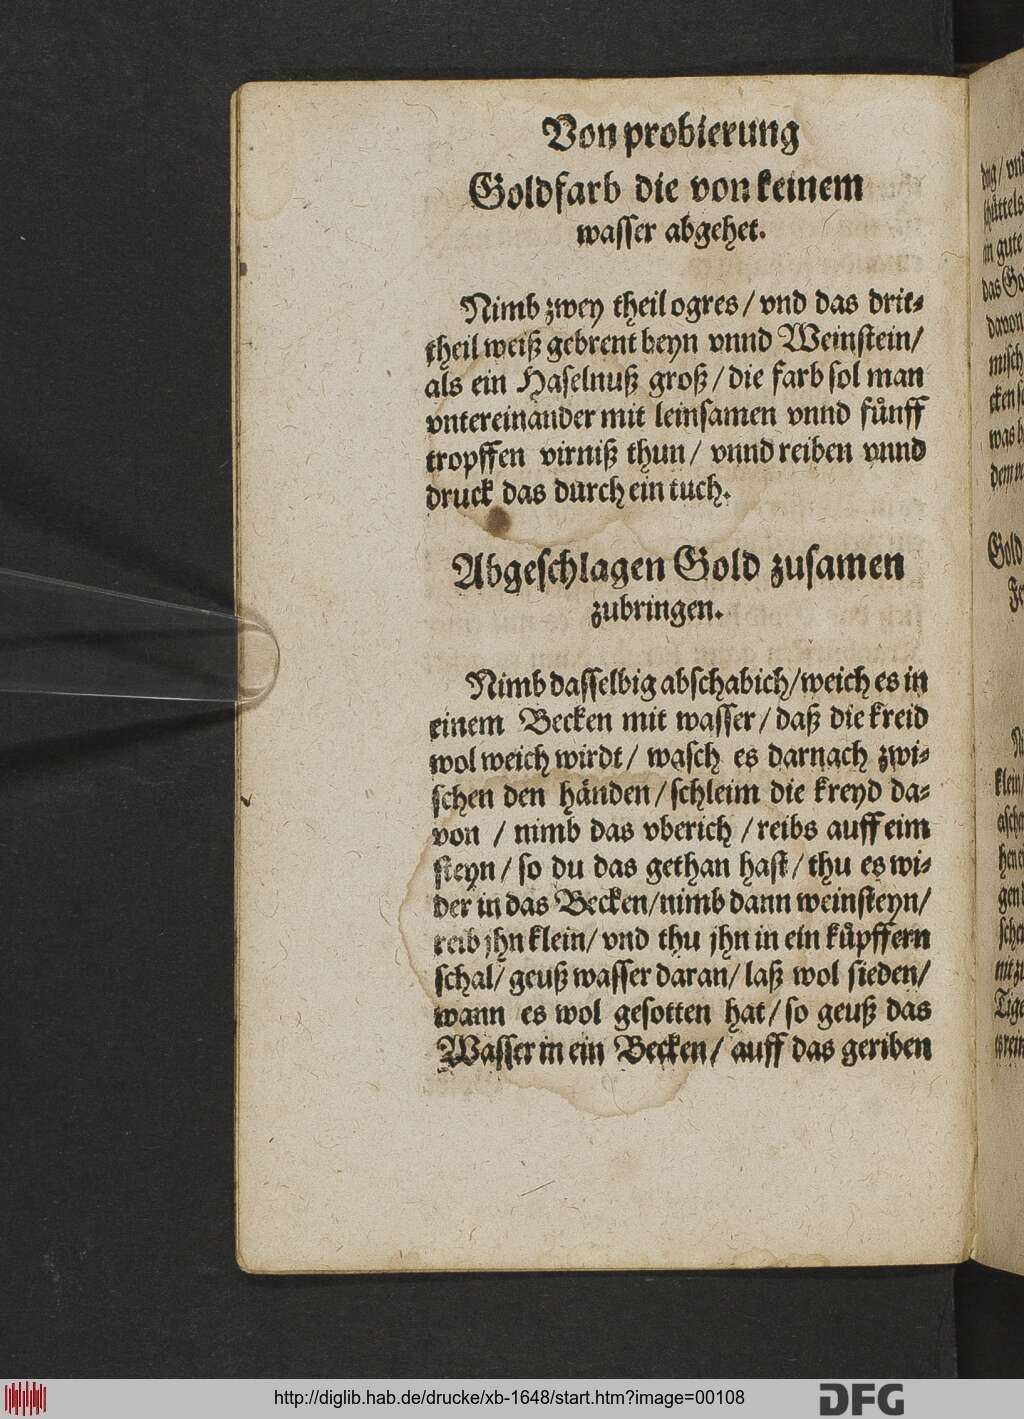 Von probierung
Goldfarb die von keinem
wasser abgehet.
Nimb zwey theil ogres / vnd das drit⸗
theil weiß gebrent beyn vnnd Weinstein /
als ein Haselnuß groß / die farb sol man
vntereinander mit leinsamen vnnd fuͤnff
tropffen virniß thun / vnnd reiben vnnd
druck das durch ein tuch.
Abgeschlagen Gold zusamen
zubringen.
Nimb dasselbig abschabich / weich es in
einem Becken mit wasser / daß die kreid
wol weich wirdt / wasch es darnach zwi⸗
schen den haͤnden / schleim die kreyd da⸗
von / nimb das vberich / reibs auff eim
steyn / so du das gethan hast / thu es wi⸗
der in das Becken / nimb dann weinsteyn /
reib jhn klein / vnd thu jhn in ein kuͤpffern
schal / geuß wasser daran / laß wol sieden /
wann es wol gesotten hat / so geuß das
Wasser in ein Becken / auff das geriben
in gute
das Go
davon
misch
was
Gold
klein /
http://diglib.hab.de/drucke/xb-1648/start.htm?image=00108
DFG